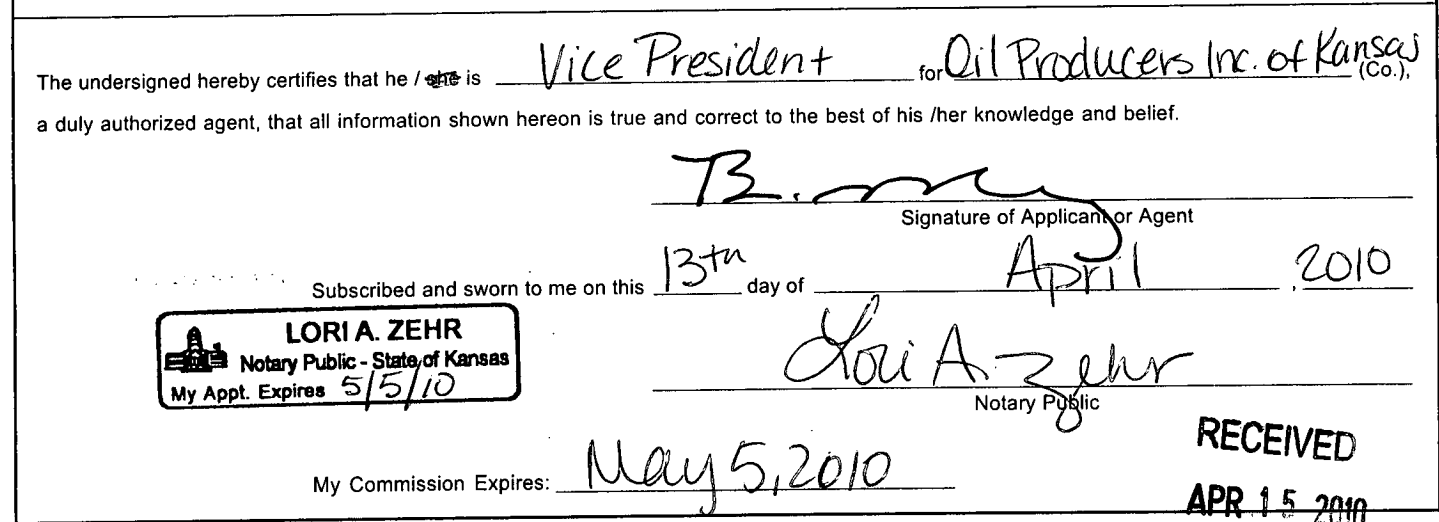 The undersigned hereby certifies that he / she is Vice President for Oil Producers Inc. of Kansas (Co.),
a duly authorized agent, that all information shown hereon is true and correct to the best of his /her knowledge and belief.
Signature of Applicant or Agent
Subscribed and sworn to me on this 13th day of April , 2010
LORI A. ZEHR
Notary Public - State of Kansas
My Appt. Expires 5/5/10
Lori A. Zehr
Notary Public
My Commission Expires: May 5, 2010
RECEIVED
APR 15 2010